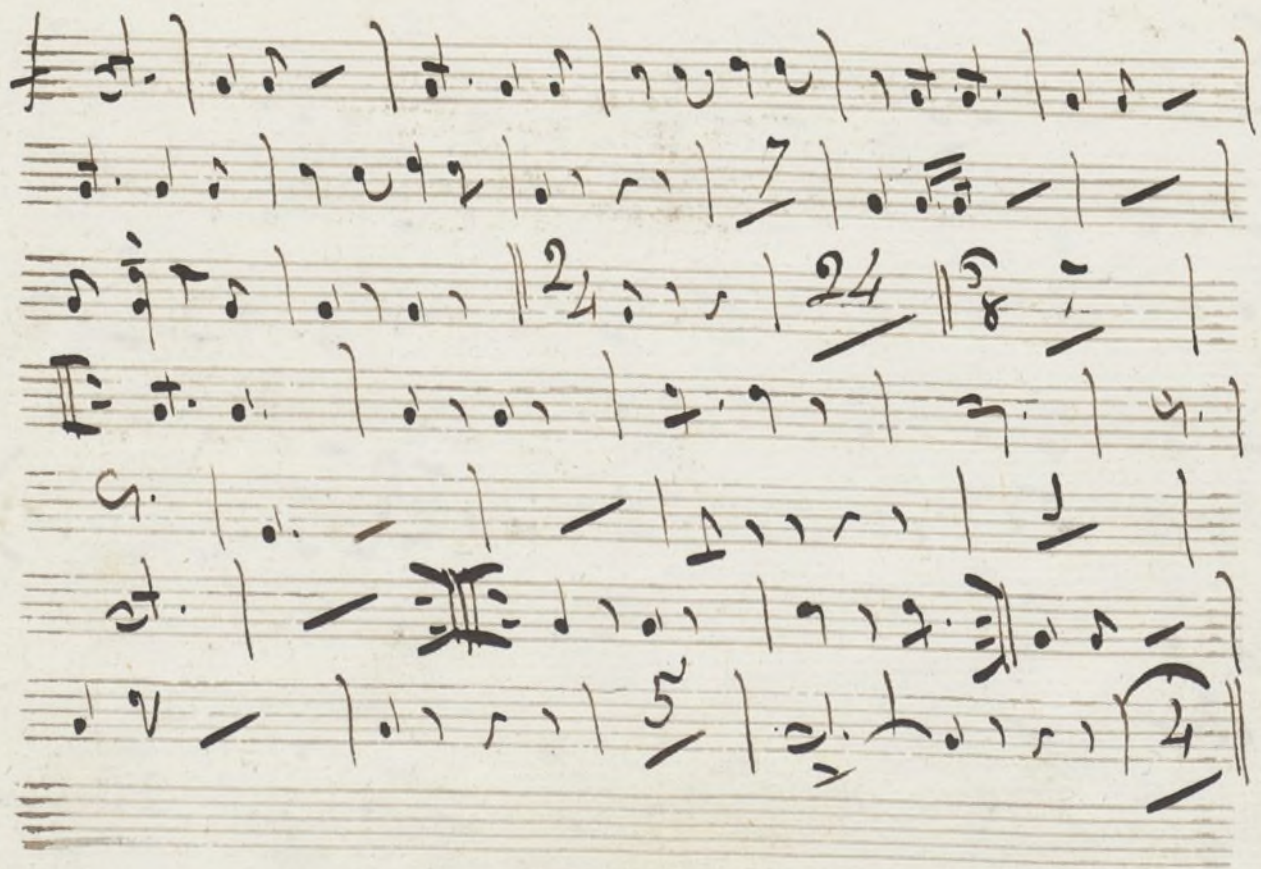 7
2 4 24 8
5 4